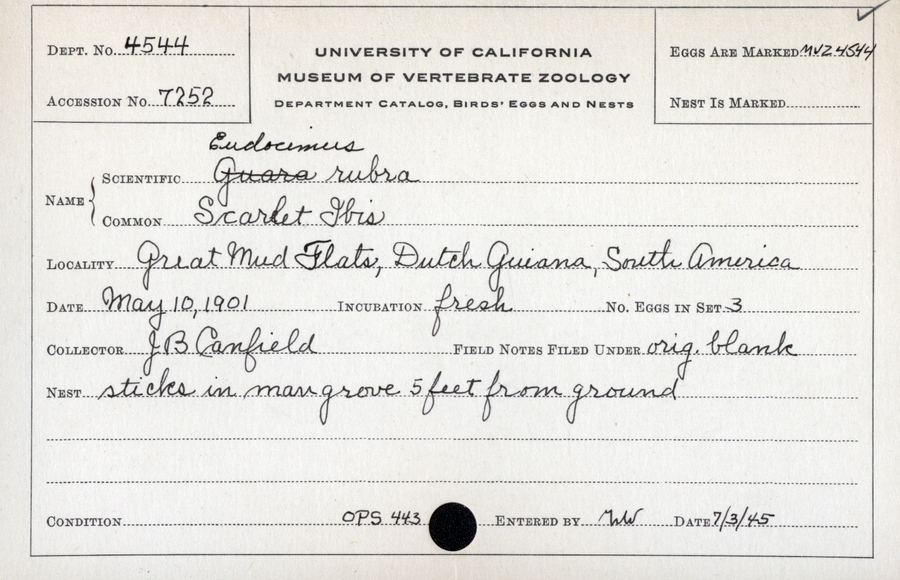 Dept. No. 4544
UNIVERSITY OF CALIFORNIA
Eggs Are Marked MVZ 4544
MUSEUM OF VERTEBRATE ZOOLOGY
Accession No. 7252
Department Catalog, Birds' Eggs and Nests
Nest Is Marked
Eudocimus
Name { Scientific Guara rubra
Common Scarlet Ibis
Locality Great Mud Flats, Dutch Guiana, South America
Date May 10, 1901 Incubation fresh No. Eggs in Set 3
Collector J B Canfield Field Notes Filed Under orig. blank
Nest sticks in mangrove 5 feet from ground
Condition OPS 443 Entered by Date 7/3/45